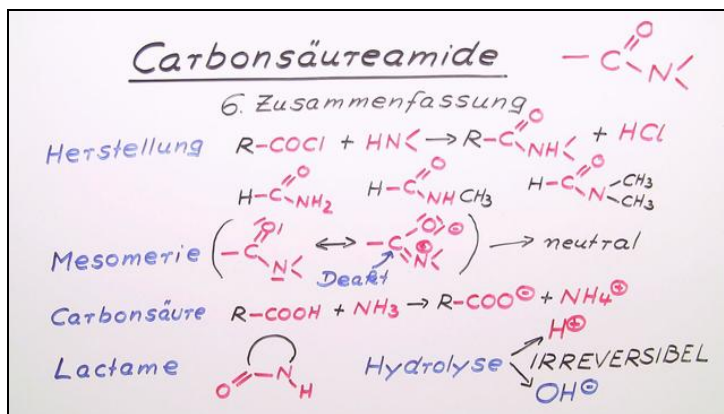 Carbonsäureamide —C(=O)—N<
6. Zusammenfassung
Herstellung R-COCl + HN< → R-C(=O)NH< + HCl
H-C(=O)NH2 H-C(=O)NHCH3 H-C(=O)N(CH3)CH3
Mesomerie (-C(=O)-N< ↔ -C(O⊖)=N⊕<) → neutral
Deakt
Carbonsäure R-COOH + NH3 → R-COO⊖ + NH4⊕
Lactame O=C-N-H Hydrolyse H⊕
IRREVERSIBEL
OH⊖